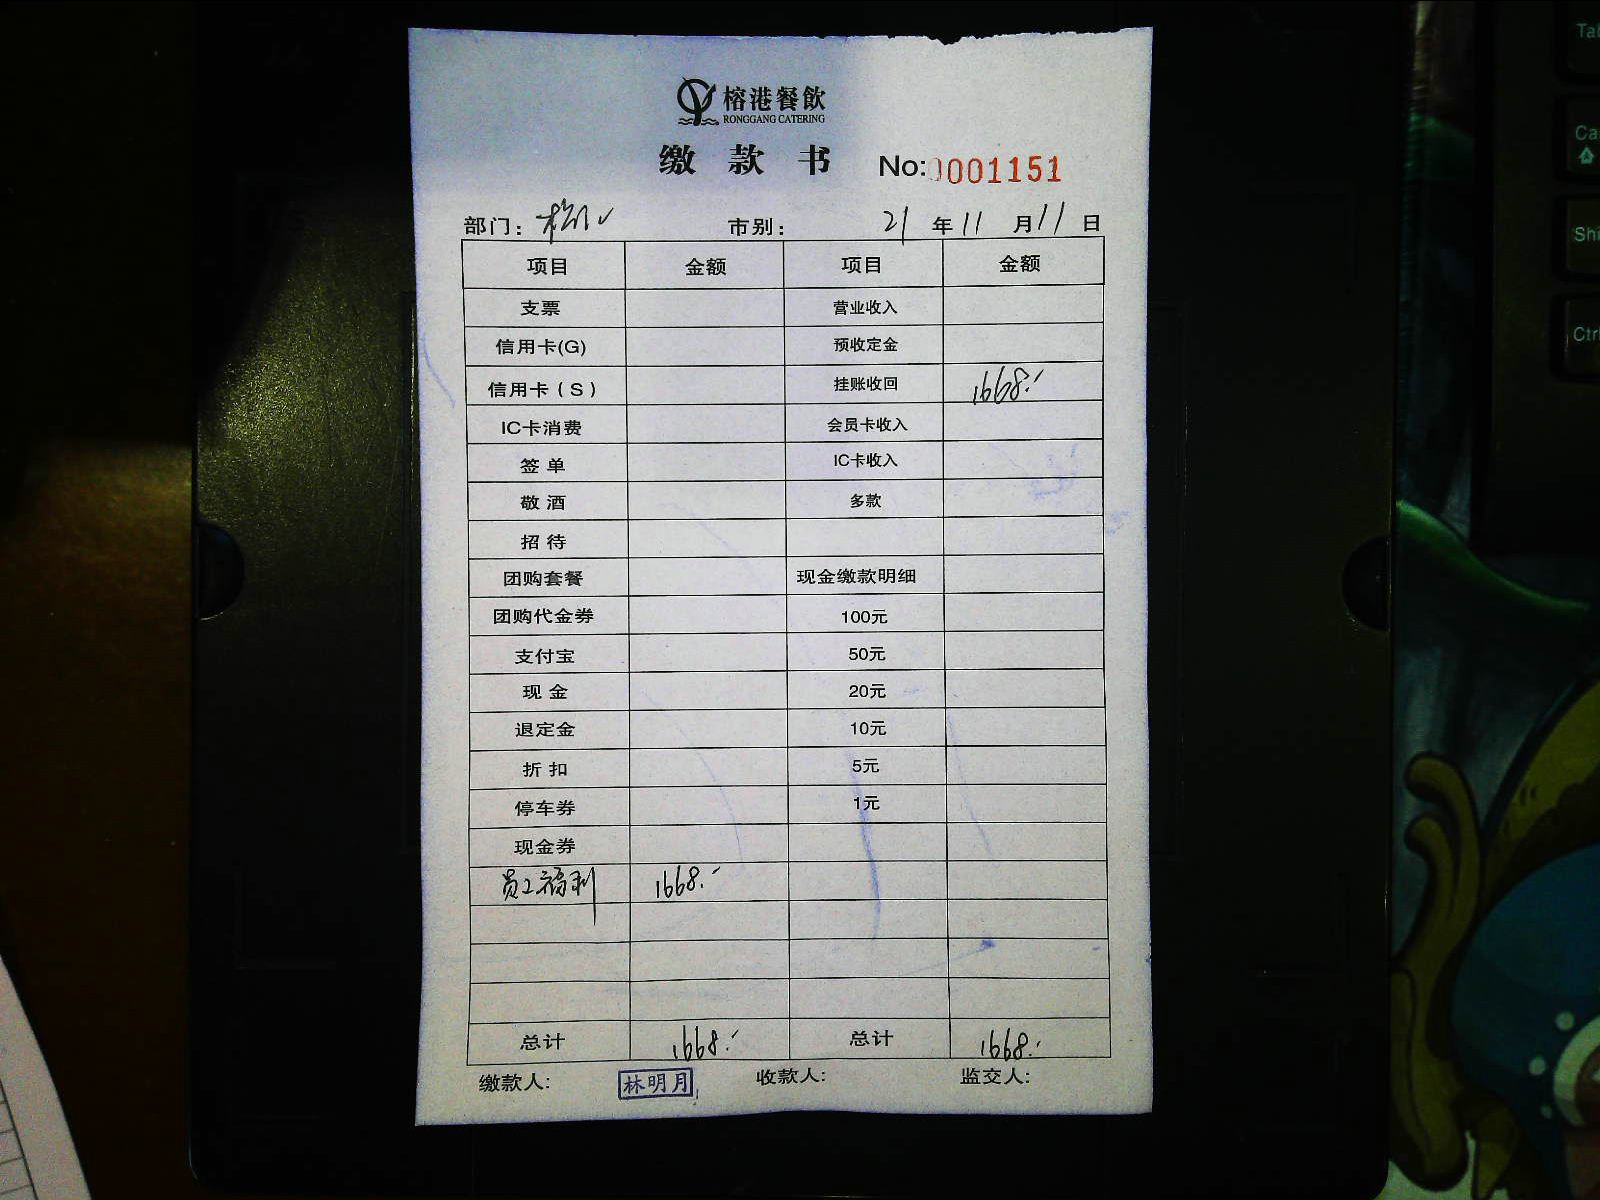 榕港餐飲
RONGGANG CATERING
缴款书 No:0001151
部门: 市别: 21年11月11日
项目 金额 项目 金额
支票 营业收入
信用卡(G) 预收定金
信用卡(S) 挂账收回 1668.-
IC卡消费 会员卡收入
签单 IC卡收入
敬酒 多款
招待
团购套餐 现金缴款明细
团购代金券 100元
支付宝 50元
现金 20元
退定金 10元
折扣 5元
停车券 1元
现金券
员工福利 1668.-
总计 1668.- 总计 1668.-
缴款人: 林明月 收款人: 监交人:
Shi
Ctrl